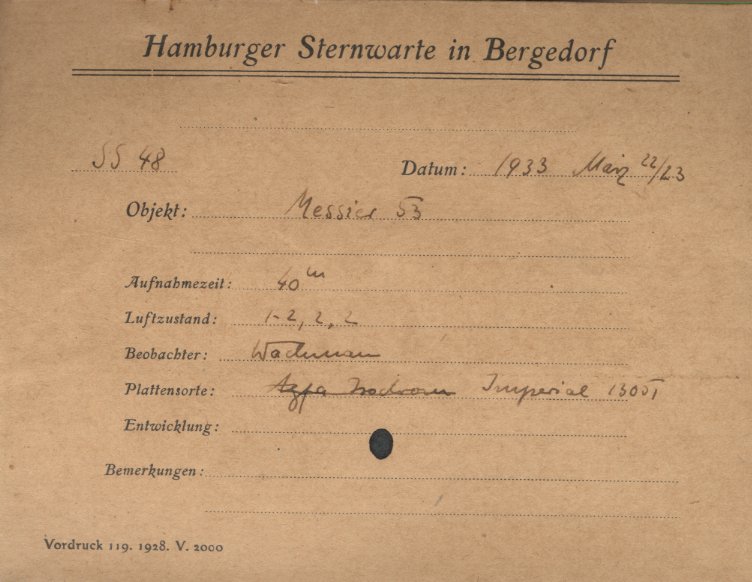 Hamburger Sternwarte in Bergedorf
SS 48
Datum: 1933 März 22/23
Objekt: Messier 53
Aufnahmezeit: 40 m
Luftzustand: 1-2, 2, 2
Beobachter: Wachmann
Plattensorte: Agfa Isochrom Imperial
Entwicklung:
Bemerkungen:
Vordruck 119. 1928. V. 2000